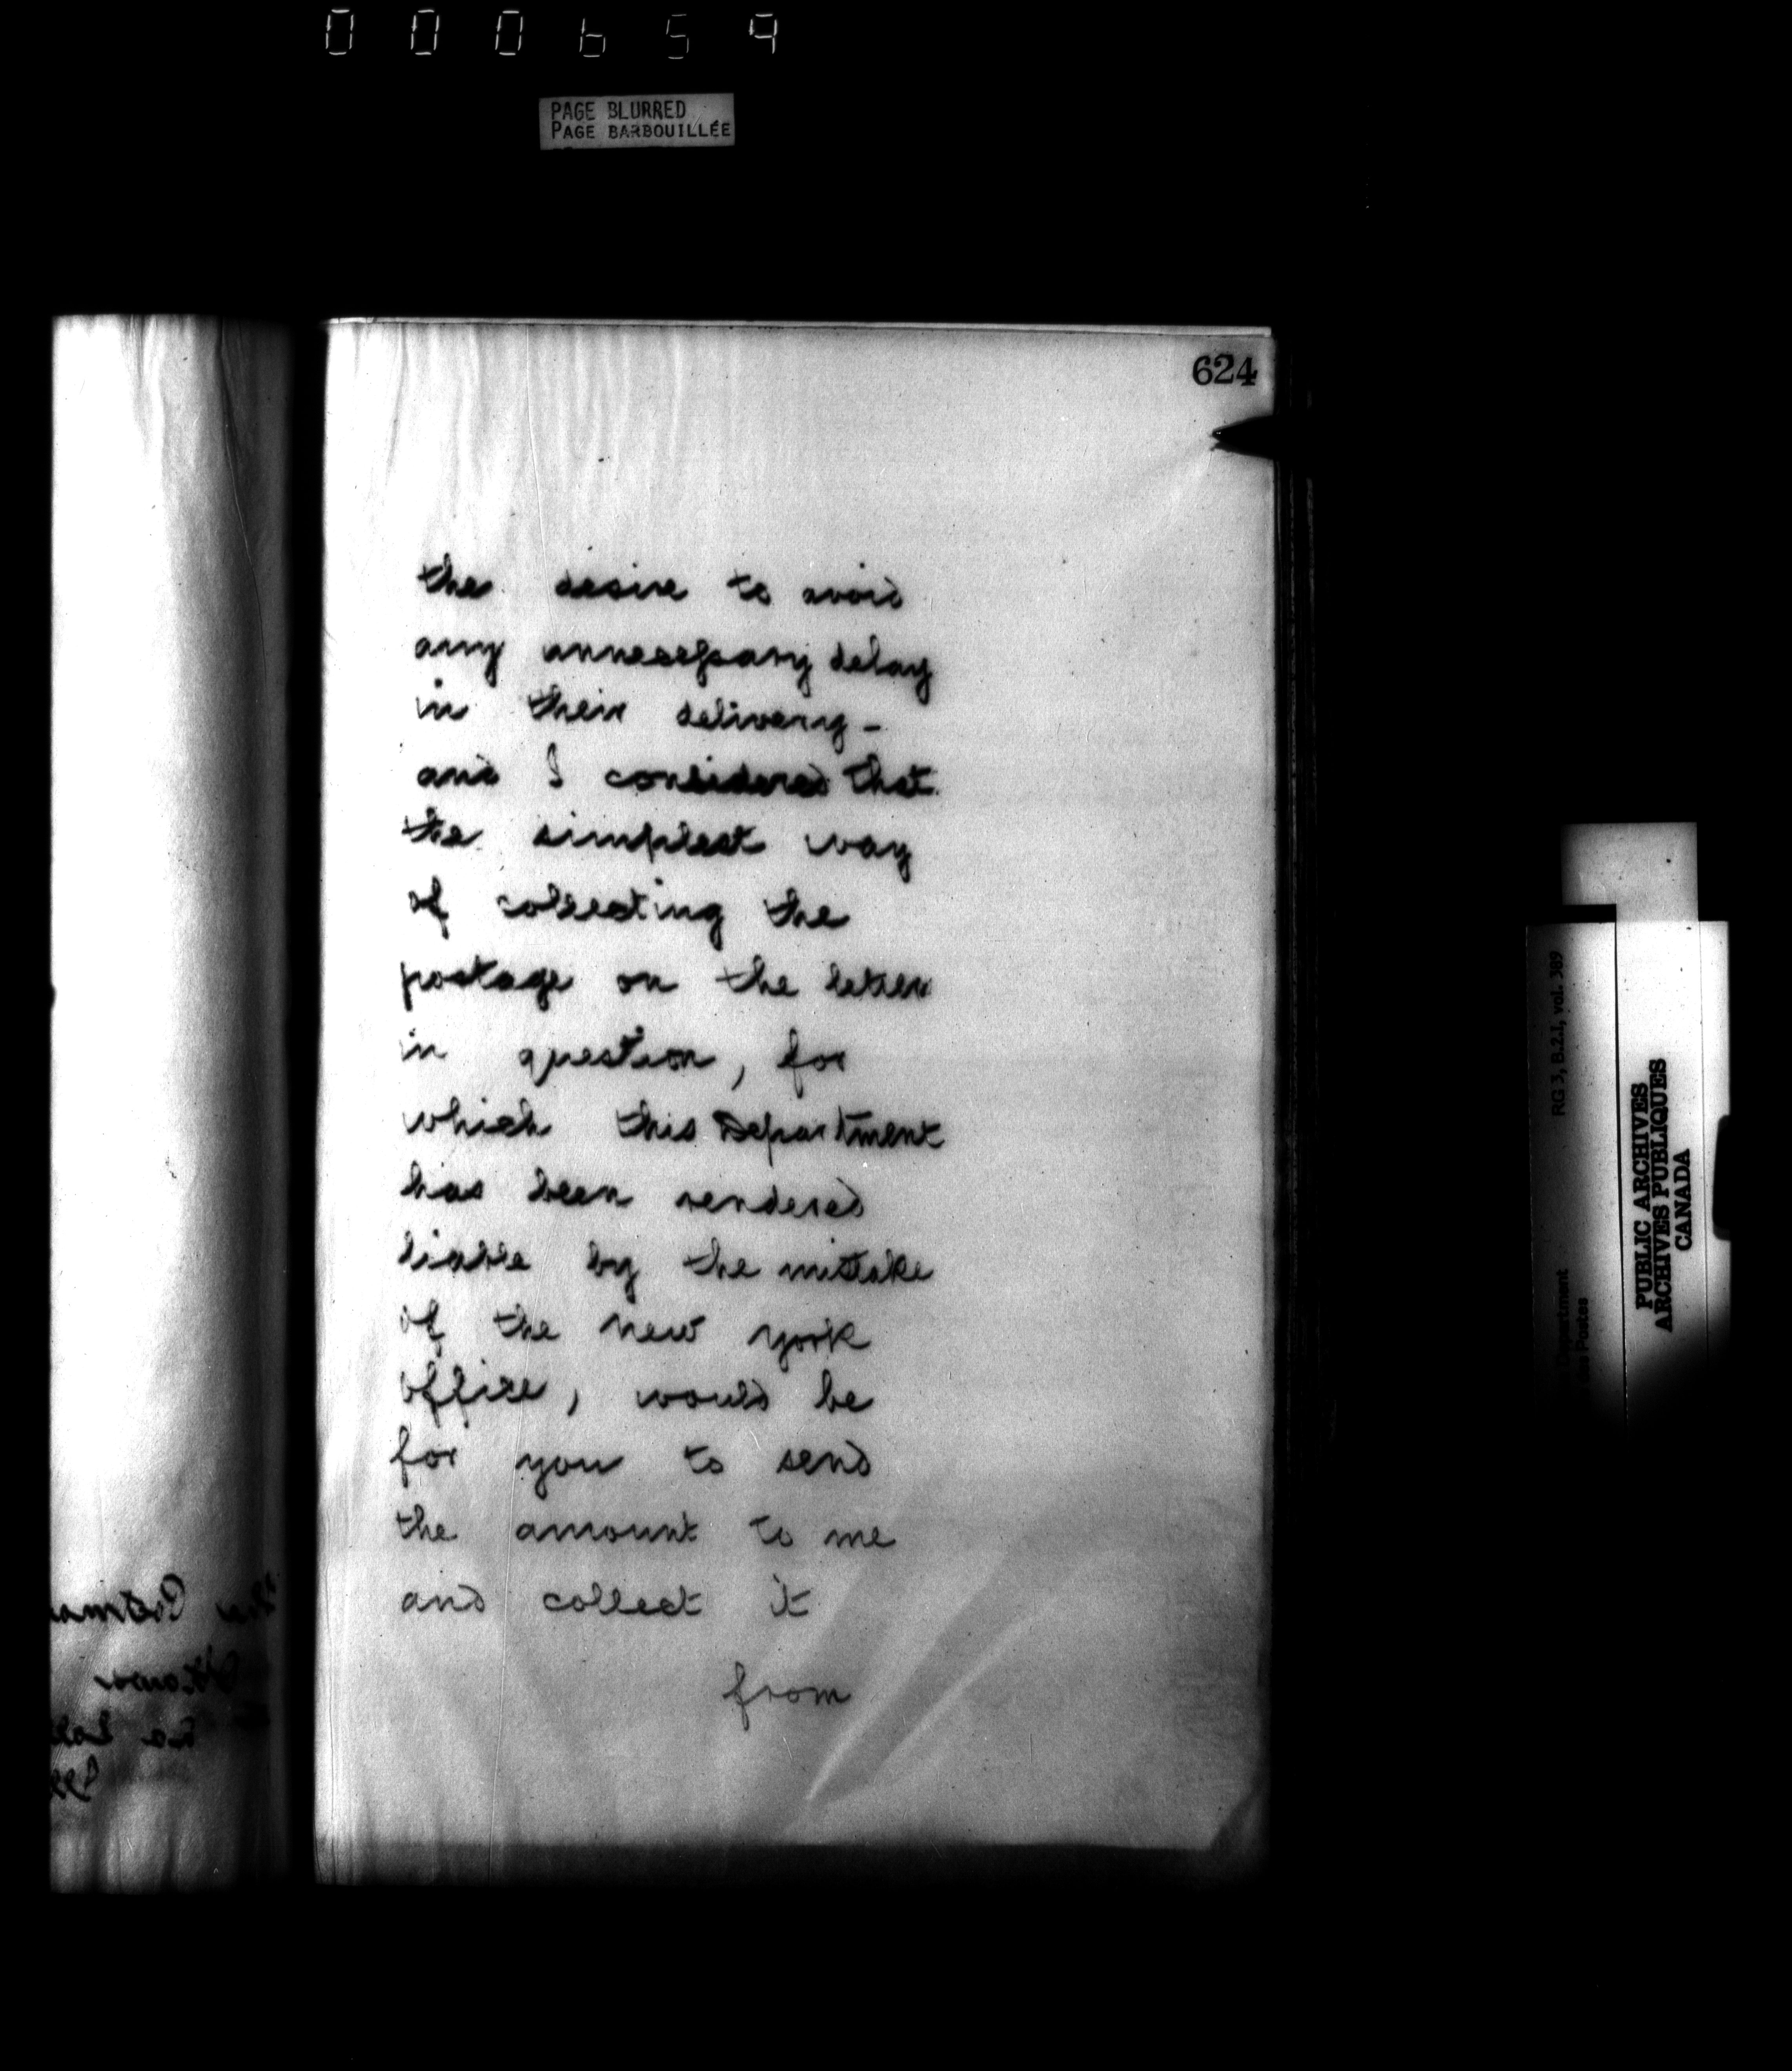 000659
PAGE BLURRED
PAGE BARBOUILLÉE
624
the desire to avoid
any unnecessary delay
in their delivery –
and I considered that
the simplest way
of collecting the
postage on the letter
in question, for
which this Department
has been rendered
liable by the mistake
of the New York
office, would be
for you to send
the amount to me
and collect it
from
RG 3, B.2.1, vol. 389
Department
Postes
PUBLIC ARCHIVES
ARCHIVES PUBLIQUES
CANADA